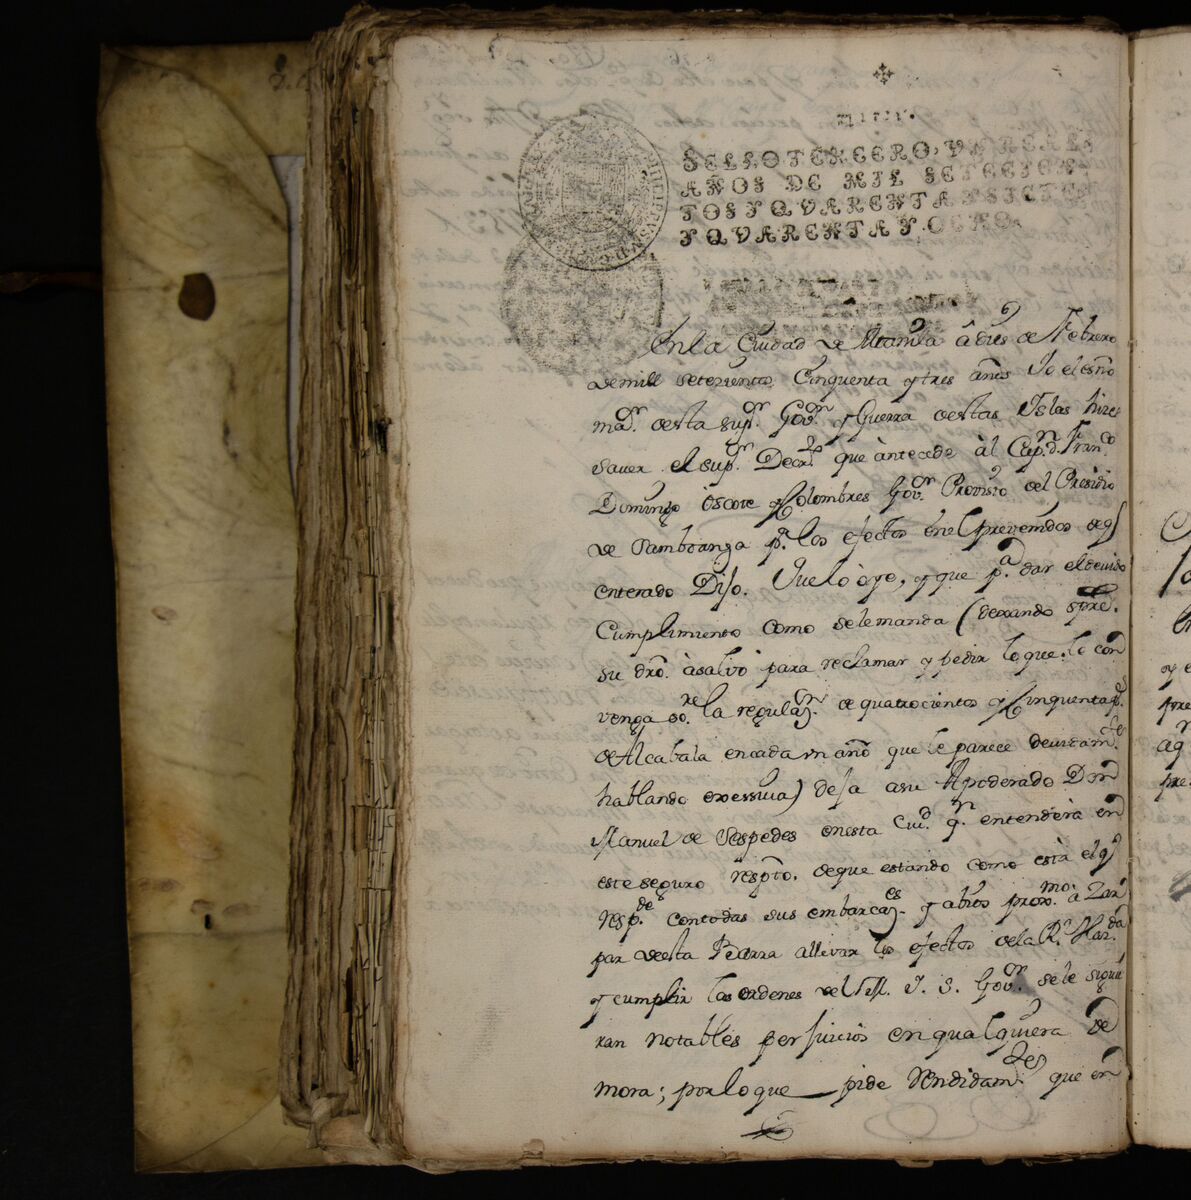 SELLO TERCERO, UN REAL,
AÑOS DE MIL SETECIEN-
TOS Y QUARENTA Y SIETE
Y QUARENTA Y OCHO.
En la Ciudad de Manila â dies de Febrero
de mill setezientos Cinquenta y tres años Yo el essno
maor. desta supor. Govon. y Guerra destas Yslas hize
saver el supor. Decrto que àntecede àl Capn. dn. Franco
Domingo Oscote y Colombres Govor. Provisto del Presidio
de Samboanga pa. los efectos enel prevenidos de qe
enterado Dijo. Que lo oye, y que pa. dar el devido
Cumplimiento como se le manda (dexando spre.
su dro. àsalvo para reclamar y pedir lo que le con
venga sore. la regulaon. de quatrocientos y Cinquenta ps.
de Alcabala encada un año que le parece devidamte
hablando exessiva) deja asu Apoderado Don
Manuel de Sespedes enesta Ciud. qn. entenderà en
este seguro respto. deque estando como està el qe
respde. contodas sus embarcaes. y abios proxmo. a Zar
par desta Barra allevar los efectos dela Rl. Hazda
y cumplir las ordenes del Yll. S. Govor. sele segui
ran notables perjuicios en qualquiera de
mora; por lo que pide Rendidamte que en